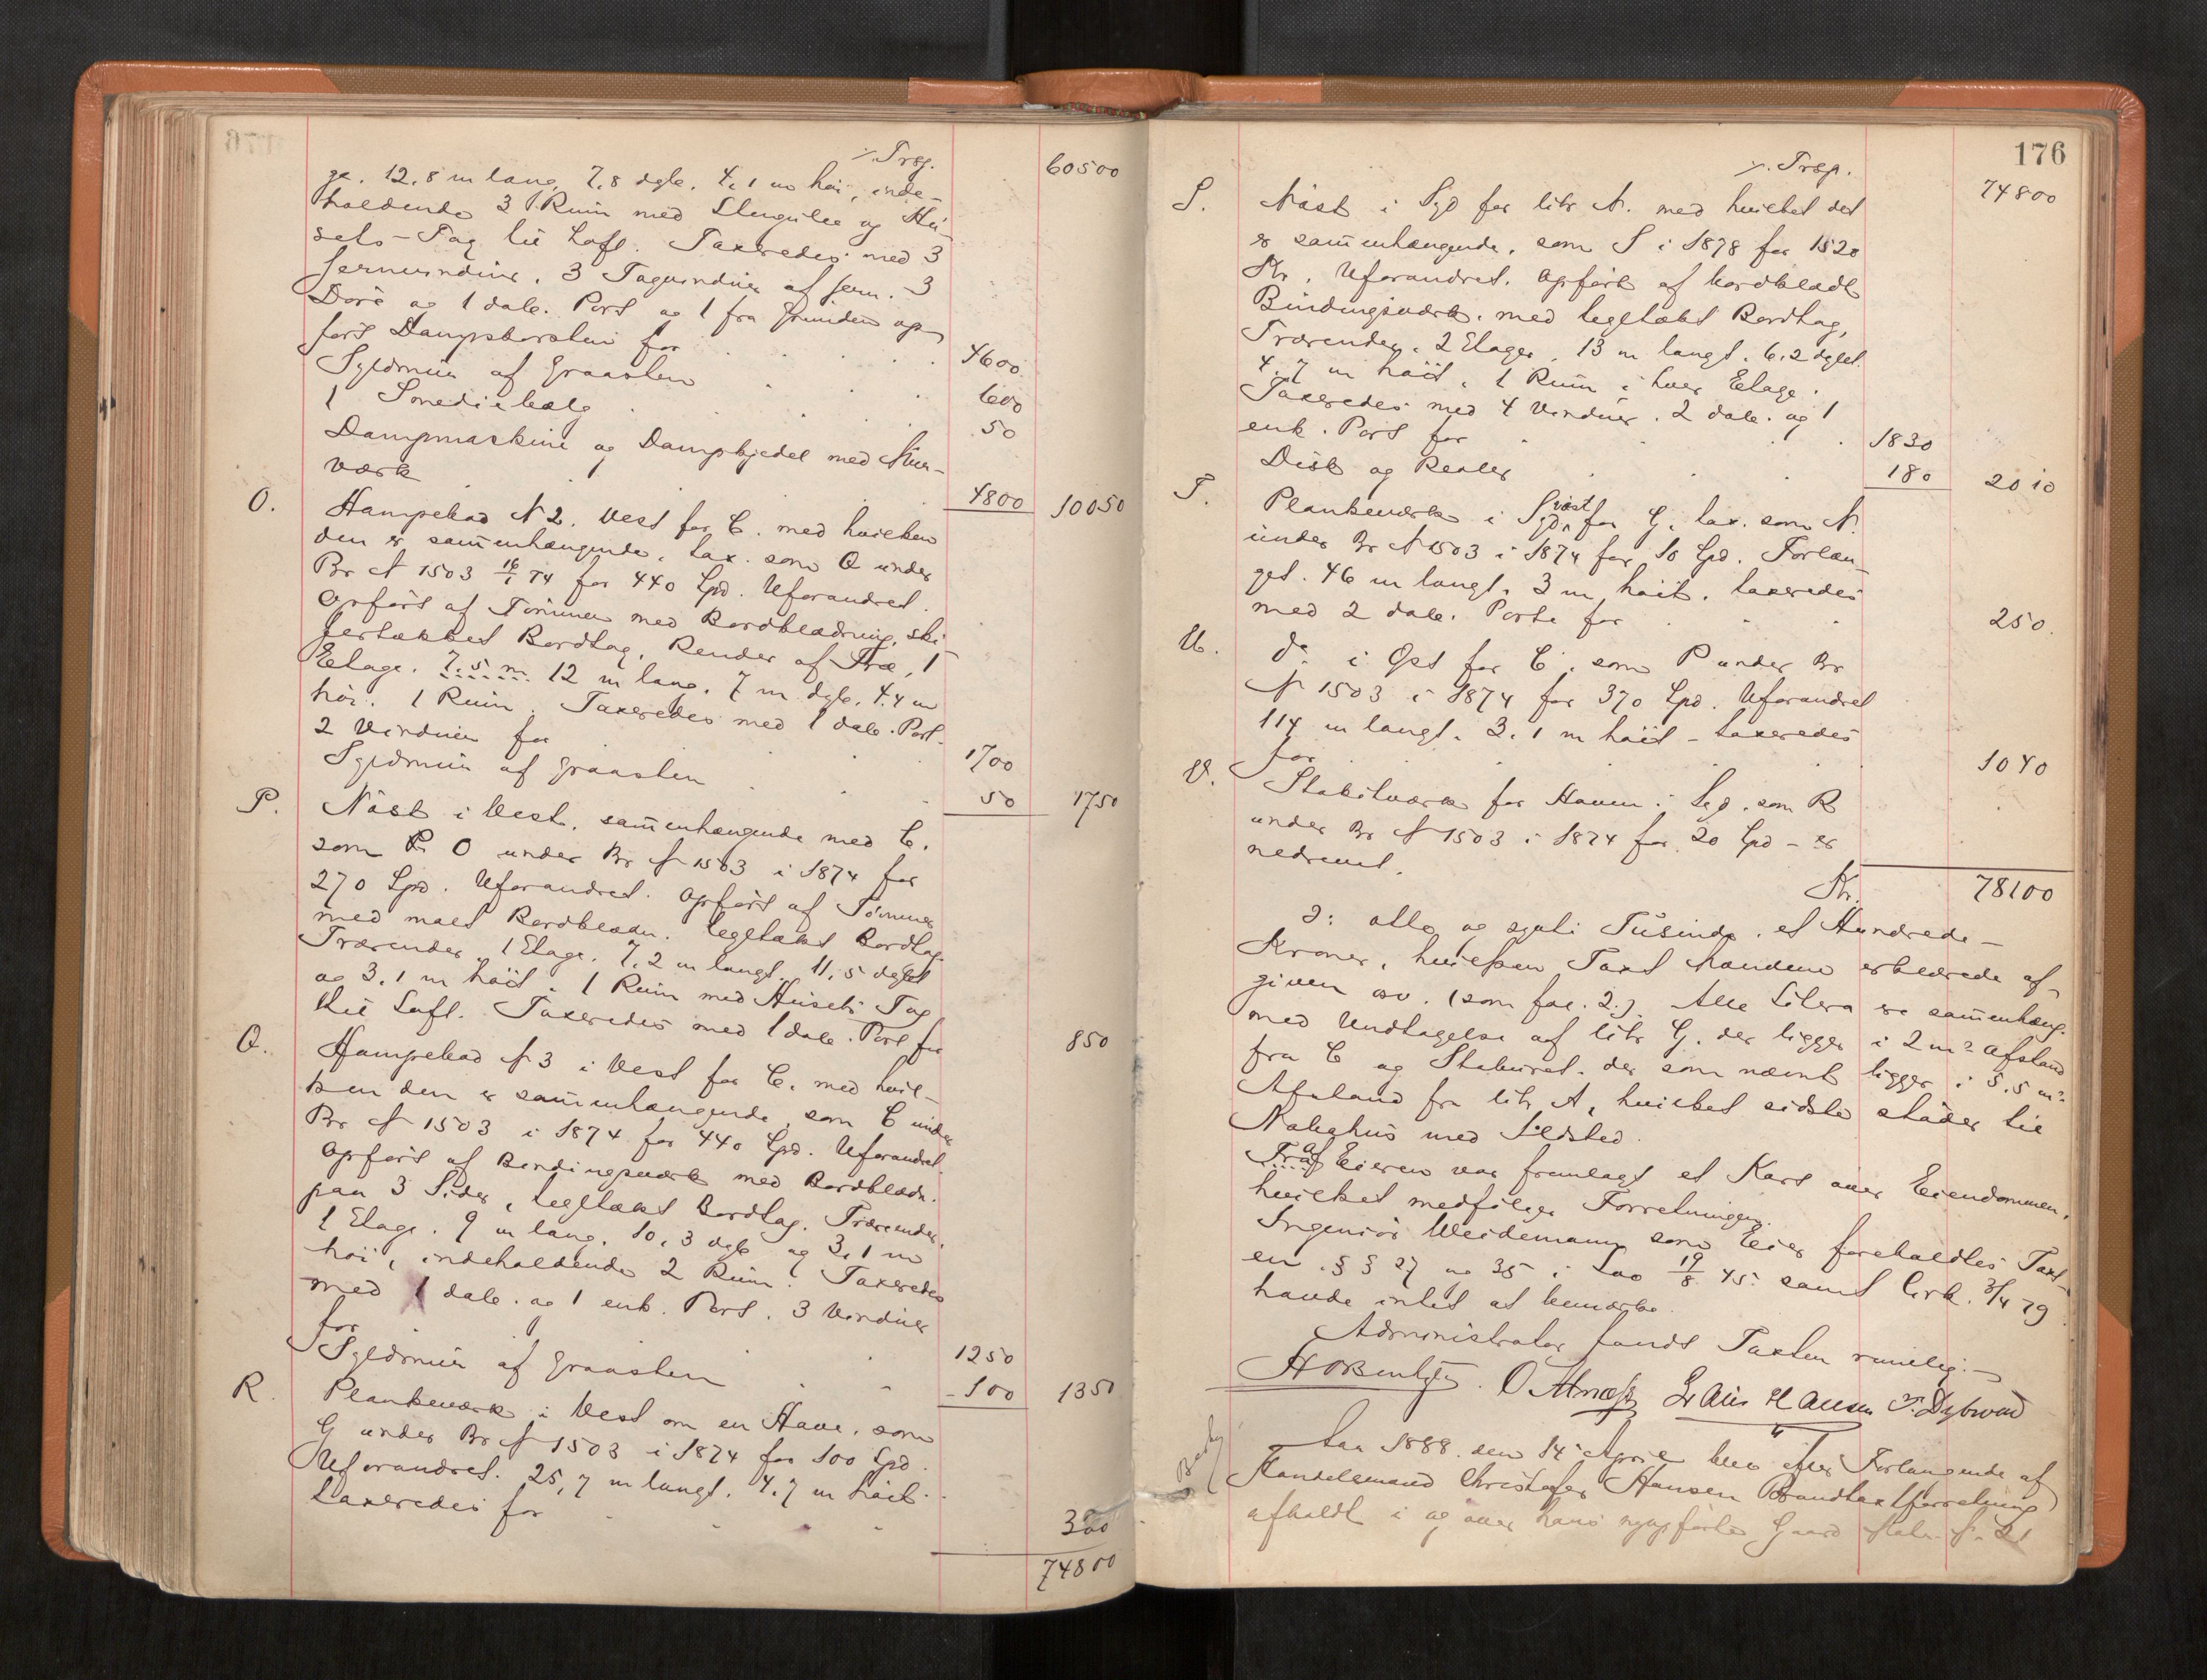 ⁒ Trsp. 60500
ge. 12,8 m lang, 7,8 dyb. 4,1 m høi, inde-
holdende 3 Rum med Stengulv og Hu-
sets-Tag til Loft. Taxeredes med 3
Jernvinduer, 3 Tagvinduer af Jern. 3
Döre og 1 dob. Port og 1 fra Grunden op-
fört Dampskorsten for 4600
Syldmur af Graasten 600
1 Smediebælg 50
Dampmaskine og Dampkjedel med Mur-
værk 4800 10050
O. Hampebod N 2. Vest for C. med hvilken
den er sammenhængende, tax. som Q under
Br N 1503 16/1 74 for 440 Spd. Uforandret.
Opfört af Tömmer med Bordklædning, ski-
fertækket Bordtag, Render af Træ, 1
Etage. 7.5 m 12 m lang, 7 m dyb, 4,4 m
höi. 1 Rum. Taxeredes med 1 dob. Port
2 Vinduer for 1700
Syldmur af Graasten 50 1750
P. Nöst i Vest, sammenhængende med C.
som O under Br N 1503 i 1874 for
270 Spd. Uforandret. Opfört af Tömmer
med malt Bordklædn. tegltækt Bordtag
Trærender, 1 Etage, 7,2 m langt, 11,5 dybt
og 3,1 m höit. 1 Rum med Husets Tag
til Loft. Taxeredes med 1 dob. Port for 850
Q. Hampebod N 3 i Vest for C. med hvil-
ken den er sammenhængende, som C under
Br N 1503 i 1874 for 440 Spd. Uforandret.
Opfört af Bindingsværk med Bordklædn.
paa 3 Sider, tegltækt Bordtag. Trærender.
1 Etage. 9 m lang, 10,3 dyb og 3,1 m
höi, indeholdende 2 Rum. Taxeredes
med 1 dob. og 1 enk. Port, 3 Vinduer
for 1250
Syldmur af Graasten 100 1350
R. Plankeværk i Vest om en Have, som
G under Br N 1503 i 1874 for 100 Spd.
Uforandret. 25,7 m langt. 4,7 m höit.
Taxeredes for 300
74800
176
⁒ Trsp. 74800
S. Nöst i Syd for litr N. med hvilket det
er sammenhængende, som S i 1878 for 1520
Kr. Uforandret. Opfört af bordklædt
Bindingsværk, med tegltækt Bordtag,
Trærender. 2 Etager, 13 m langt. 6,2 dybt.
4,7 m höit, 1 Rum i hver Etage.
Taxeredes med 4 Vinduer. 2 dob. og 1
enk. Port for 1830
Disk og Reoler 180 2010
T. Plankeværk i Sydvest for G, tax. som N.
under Br N 1503 i 1874 for 10 Spd. Forlæn-
get. 46 m langt, 3 m höit, taxeredes
med 2 dob. Porte for 250
U. do i Öst for C. som P under Br
N 1503 i 1874 for 370 Spd. Uforandret
114 m langt. 3,1 m höit - taxeredes
for 1040
V. Stakitværk for Haven i Syd, som R
under Br N 1503 i 1874 for 20 Spd - er
nedrevet.
Kr. 78100
ɔ: otte og sytti Tusinde, et Hundrede
Kroner, hvilken Taxt Mændene erklærede af-
given osv. (som fol. 2.). Alle Litera er sammenhæng.
med Undtagelse af litr G. der ligger i 2 m Afstand
fra C og Stakuret. der som nævnt ligger i 5.5 m
Afstand fra litr A, hvilket sidste stöder til
Nabohus med Ildsted.
Af Eieren var fremlagt et Kart over Eiendommen,
hvilket medfölger Forretningen.
Ingeniör Weidemann som Eier foreholdtes Taxt-
en, §§ 27 og 35 i Lov 19/8 45 samt Cirk. 3/4 79
havde intet at bemærke.
Administrator fandt Taxten rimelig.
HOBentzen. O Almaas Lauis Hansen P. Dybwad
Aar 1888 den 14 April blev efter Forlangende af
Handelsmand Christofer Hansen Brandtaxtforretning
afholdt i og over hans nyopförte Gaard Matr. N. 21